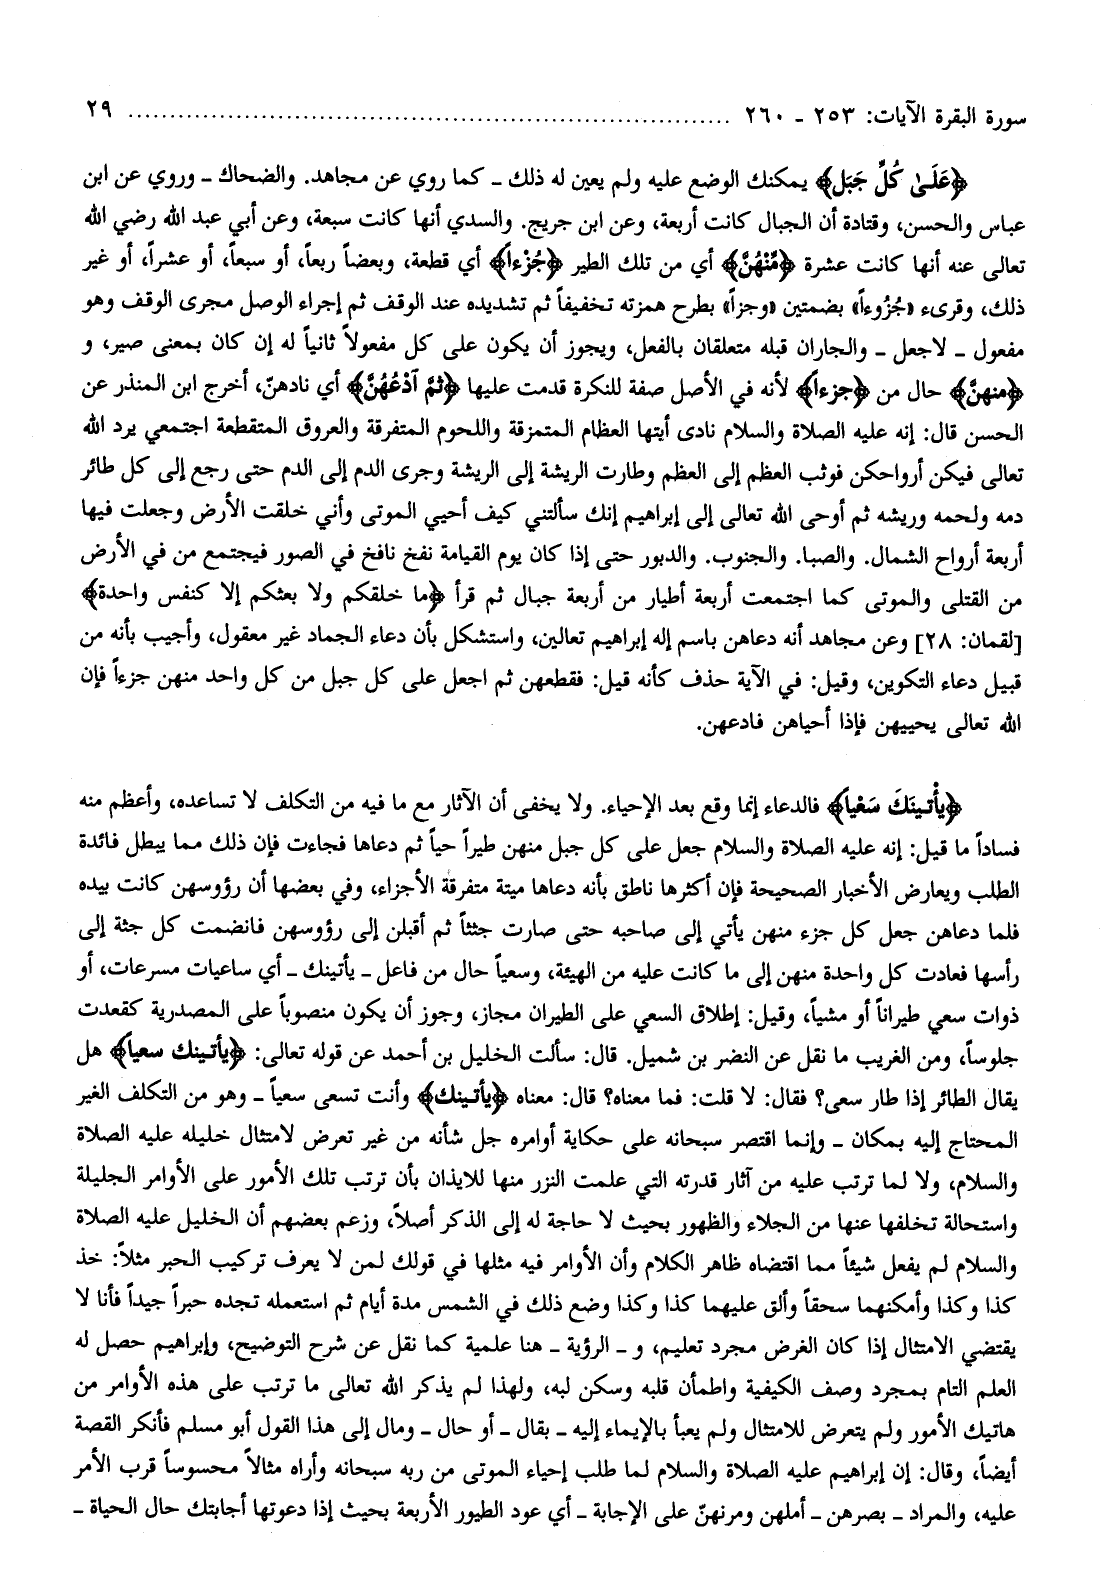 سورة البقرة الآيات: ٢٥٣ ـ ٢٦٠ ........................................................................ ٢٩
﴿عَلَىٰ كُلِّ جَبَلٍ﴾ يمكنك الوضع عليه ولم يعين له ذلك ـ كما روي عن مجاهد. والضحاك ـ وروي عن ابن
عباس والحسن، وقتادة أن الجبال كانت أربعة، وعن ابن جريج. والسدي أنها كانت سبعة، وعن أبي عبد الله رضي الله
تعالى عنه أنها كانت عشرة ﴿مِّنْهُنَّ﴾ أي من تلك الطير ﴿جُزْءاً﴾ أي قطعة، وبعضاً ربعاً، أو سبعاً، أو عشراً، أو غير
ذلك، وقرىء «جُزُوءاً» بضمتين «وجزاً» بطرح همزته تخفيفاً ثم تشديده عند الوقف ثم إجراء الوصل مجرى الوقف وهو
مفعول ـ لاجعل ـ والجاران قبله متعلقان بالفعل، ويجوز أن يكون على كل مفعولاً ثانياً له إن كان بمعنى صير، و
﴿منهنَّ﴾ حال من ﴿جزءاً﴾ لأنه في الأصل صفة للنكرة قدمت عليها ﴿ثمَّ ٱدْعُهُنَّ﴾ أي نادهنّ، أخرج ابن المنذر عن
الحسن قال: إنه عليه الصلاة والسلام نادى أيتها العظام المتمزقة واللحوم المتفرقة والعروق المتقطعة اجتمعي يرد الله
تعالى فيكن أرواحكن فوثب العظم إلى العظم وطارت الريشة إلى الريشة وجرى الدم إلى الدم حتى رجع إلى كل طائر
دمه ولحمه وريشه ثم أوحى الله تعالى إلى إبراهيم إنك سألتني كيف أحيي الموتى وأني خلقت الأرض وجعلت فيها
أربعة أرواح الشمال. والصبا. والجنوب. والدبور حتى إذا كان يوم القيامة نفخ نافخ في الصور فيجتمع من في الأرض
من القتلى والموتى كما اجتمعت أربعة أطيار من أربعة جبال ثم قرأ ﴿ما خلقكم ولا بعثكم إلا كنفس واحدة﴾
[لقمان: ٢٨] وعن مجاهد أنه دعاهن باسم إله إبراهيم تعالين، واستشكل بأن دعاء الجماد غير معقول، وأجيب بأنه من
قبيل دعاء التكوين، وقيل: في الآية حذف كأنه قيل: فقطعهن ثم اجعل على كل جبل من كل واحد منهن جزءاً فإن
الله تعالى يحييهن فإذا أحياهن فادعهن.
﴿يأْتينَكَ سَعْيا﴾ فالدعاء إنما وقع بعد الإحياء. ولا يخفى أن الآثار مع ما فيه من التكلف لا تساعده، وأعظم منه
فساداً ما قيل: إنه عليه الصلاة والسلام جعل على كل جبل منهن طيراً حياً ثم دعاها فجاءت فإن ذلك مما يبطل فائدة
الطلب ويعارض الأخبار الصحيحة فإن أكثرها ناطق بأنه دعاها ميتة متفرقة الأجزاء، وفي بعضها أن رؤوسهن كانت بيده
فلما دعاهن جعل كل جزء منهن يأتي إلى صاحبه حتى صارت جثثاً ثم أقبلن إلى رؤوسهن فانضمت كل جثة إلى
رأسها فعادت كل واحدة منهن إلى ما كانت عليه من الهيئة، وسعياً حال من فاعل ـ يأتينك ـ أي ساعيات مسرعات، أو
ذوات سعي طيراناً أو مشياً، وقيل: إطلاق السعي على الطيران مجاز، وجوز أن يكون منصوباً على المصدرية كقعدت
جلوساً، ومن الغريب ما نقل عن النضر بن شميل. قال: سألت الخليل بن أحمد عن قوله تعالى: ﴿يأتينك سعيا﴾ هل
يقال الطائر إذا طار سعى؟ فقال: لا قلت: فما معناه؟ قال: معناه ﴿يأتينك﴾ وأنت تسعى سعياً ـ وهو من التكلف الغير
المحتاج إليه بمكان ـ وإنما اقتصر سبحانه على حكاية أوامره جل شأنه من غير تعرض لامتثال خليله عليه الصلاة
والسلام، ولا لما ترتب عليه من آثار قدرته التي علمت النزر منها للايذان بأن ترتب تلك الأمور على الأوامر الجليلة
واستحالة تخلفها عنها من الجلاء والظهور بحيث لا حاجة له إلى الذكر أصلاً، وزعم بعضهم أن الخليل عليه الصلاة
والسلام لم يفعل شيئاً مما اقتضاه ظاهر الكلام وأن الأوامر فيه مثلها في قولك لمن لا يعرف تركيب الحبر مثلاً: خذ
كذا وكذا وأمكنهما سحقاً وألق عليهما كذا وكذا وضع ذلك في الشمس مدة أيام ثم استعمله تجده حبراً جيداً فأنا لا
يقتضي الامتثال إذا كان الغرض مجرد تعليم، و ـ الرؤية ـ هنا علمية كما نقل عن شرح التوضيح، وإبراهيم حصل له
العلم التام بمجرد وصف الكيفية واطمأن قلبه وسكن لبه، ولهذا لم يذكر الله تعالى ما ترتب على هذه الأوامر من
هاتيك الأمور ولم يتعرض للامتثال ولم يعبأ بالإيماء إليه ـ بقال ـ أو حال ـ ومال إلى هذا القول أبو مسلم فأنكر القصة
أيضاً، وقال: إن إبراهيم عليه الصلاة والسلام لما طلب إحياء الموتى من ربه سبحانه وأراه مثالاً محسوساً قرب الأمر
عليه، والمراد ـ بصرهن ـ أملهن ومرنهنّ على الإجابة ـ أي عود الطيور الأربعة بحيث إذا دعوتها أجابتك حال الحياة ـ